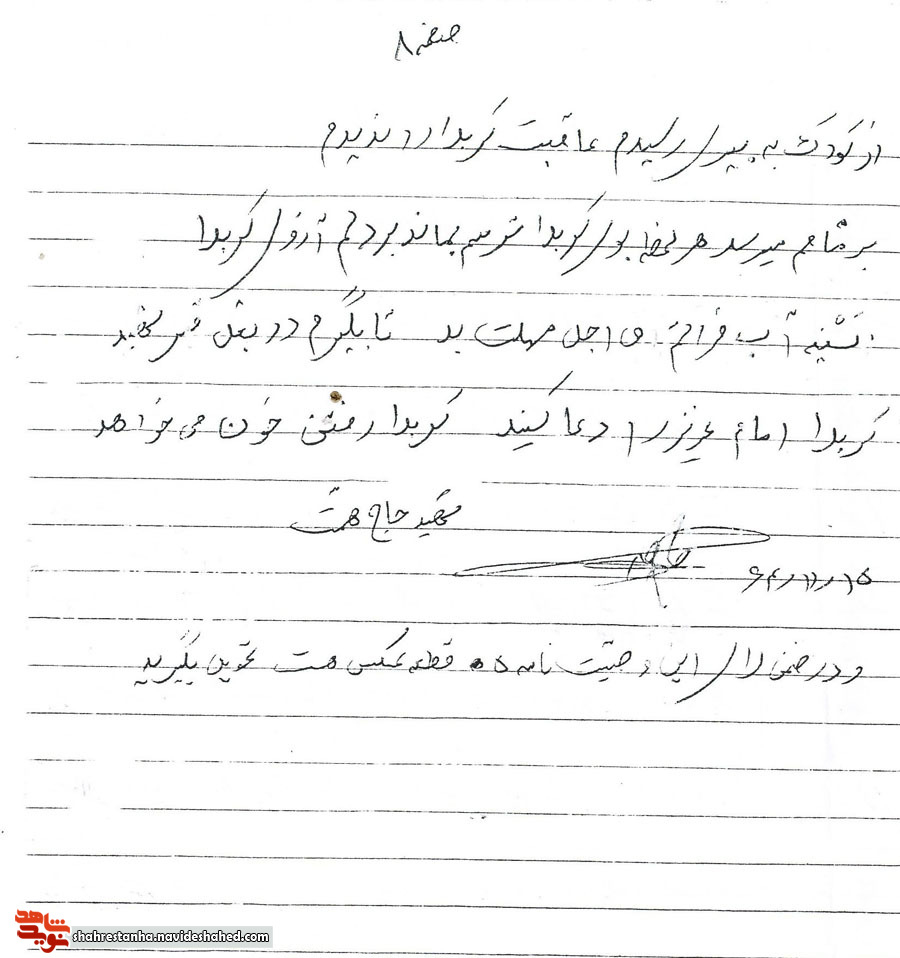 صفحه ۸
از کودکی به پیری رسیدم عاقبت کربلا را ندیدم
بر مشامم میرسد هر لحظه بوی کربلا ترسم بماند بر دلم آرزوی کربلا
تشنه آب فراتم ای اجل مهلت بده تا بگیرم در بغل قبر شهید
کربلا امام عزیز را دعا کنید کربلا رفتن خون می خواهد
شهید حاج همت
۶۴/۱۱/۱۵
و در ضمن لای این وصیت نامه ۵ قطعه عکس هست تحویل بگیرید
شاهد
نوید
shahrestanha.navideshahed.com